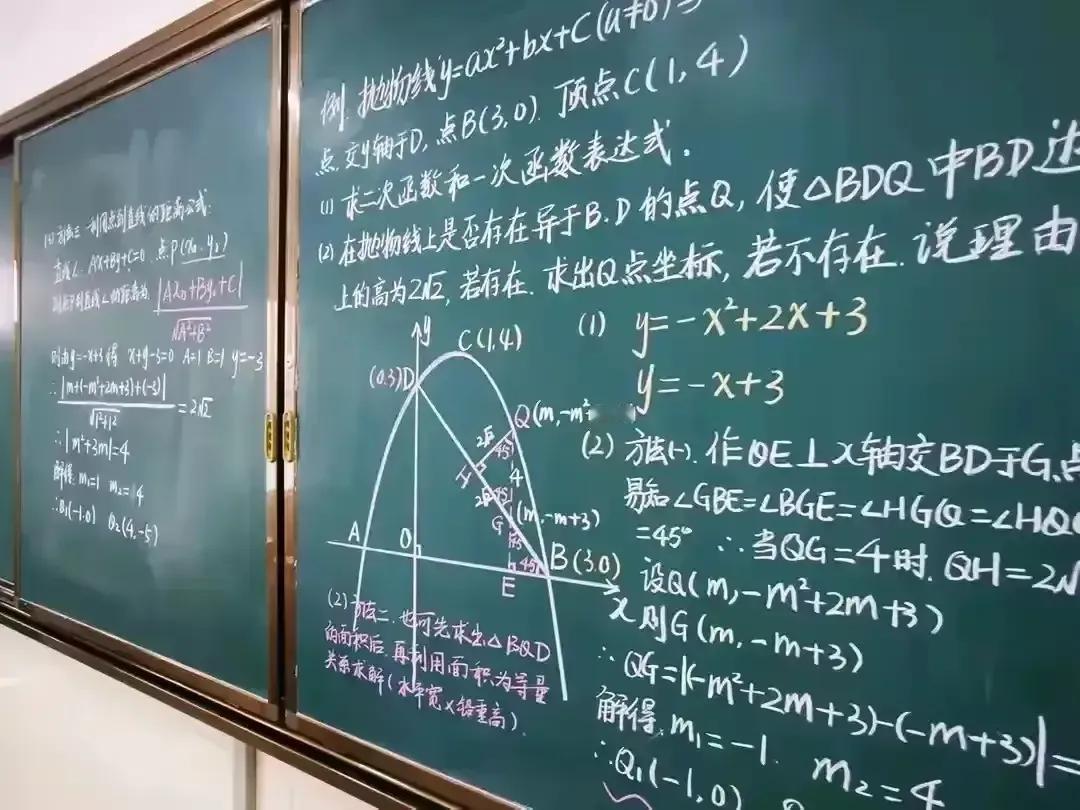 (2) 方法三 利用点到直线的距离公式:
直线L: Ax+By+C=0 点P(x₀, y₀)
则点P到直线L的距离为 |Ax₀+By₀+C|
√A²+B²
则由y=-x+3得 x+y-3=0 A=1 B=1 y=-3
∴ |m+(-m²+2m+3)+(-3)|
√1²+1²
=2√2
∴|m²+3m|=4
解得: m₁=1 m₂=4
∴Q₁(-1.0) Q₂(4,-5)
例. 抛物线y=ax²+bx+C(a≠0)
点. 交y轴于D, 点B(3,0). 顶点C(1,4)
(1) 求二次函数和一次函数表达式.
(2) 在抛物线上是否存在异于B.D的点Q, 使△BDQ中BD边
上的高为2√2, 若存在. 求出Q点坐标, 若不存在. 说理由
(1) y=-x²+2x+3
y=-x+3
y
C(1,4)
(0.3)D
Q(m,-m²
2√2
45°
H
4
2√2
45°
G
(m,-m+3)
45°
A
O
45°
B(3.0)
E
x
(2) 方法二. 也可先求出△BQD
的面积后. 再利用面积为等量
关系求解(水平宽×铅垂高).
(2) 方法(一). 作QE⊥x轴交BD于G.点
易知∠GBE=∠BGE=∠HGQ=∠HQG
=45° ∴当QG=4时. QH=2√
设Q(m,-m²+2m+3)
则G(m,-m+3)
∴QG=|(-m²+2m+3)-(-m+3)|=
解得. m₁=-1. m₂=4
∴Q₁(-1,0)